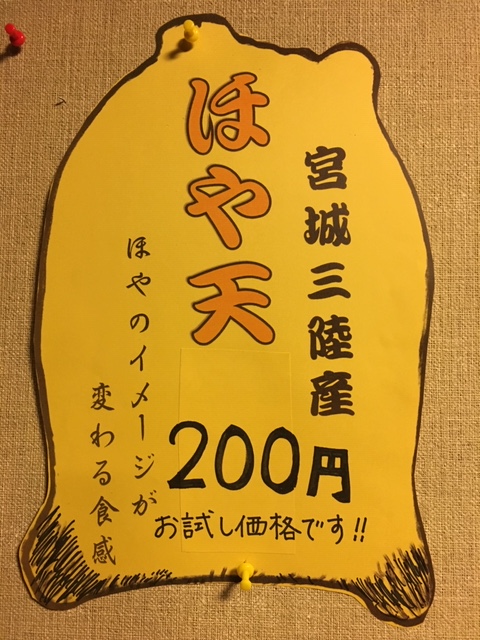 宮城三陸産
ほや天
200円
お試し価格です!!
ほやのイメージが
変わる食感